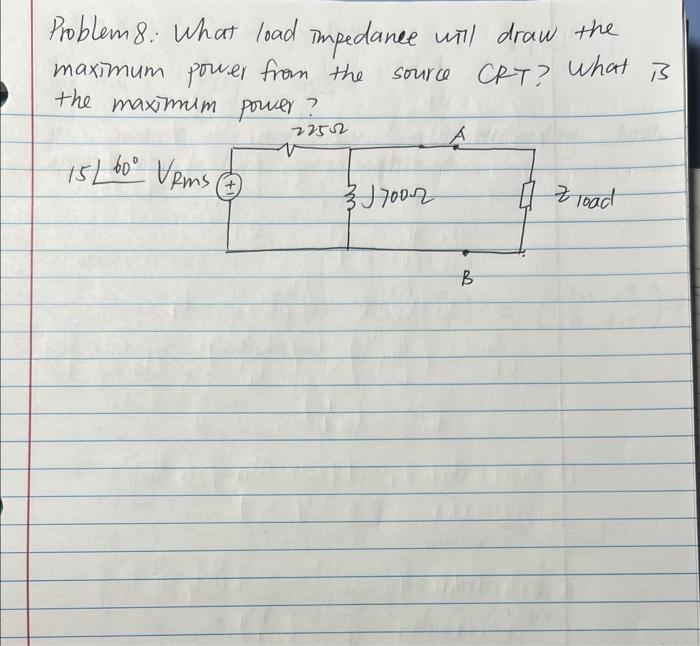 Problem 8: What load impedance will draw the
maximum power from the source CKT? What is
the maximum power?
225Ω
A
15∠60° VRms
+
J700Ω
Z load
B